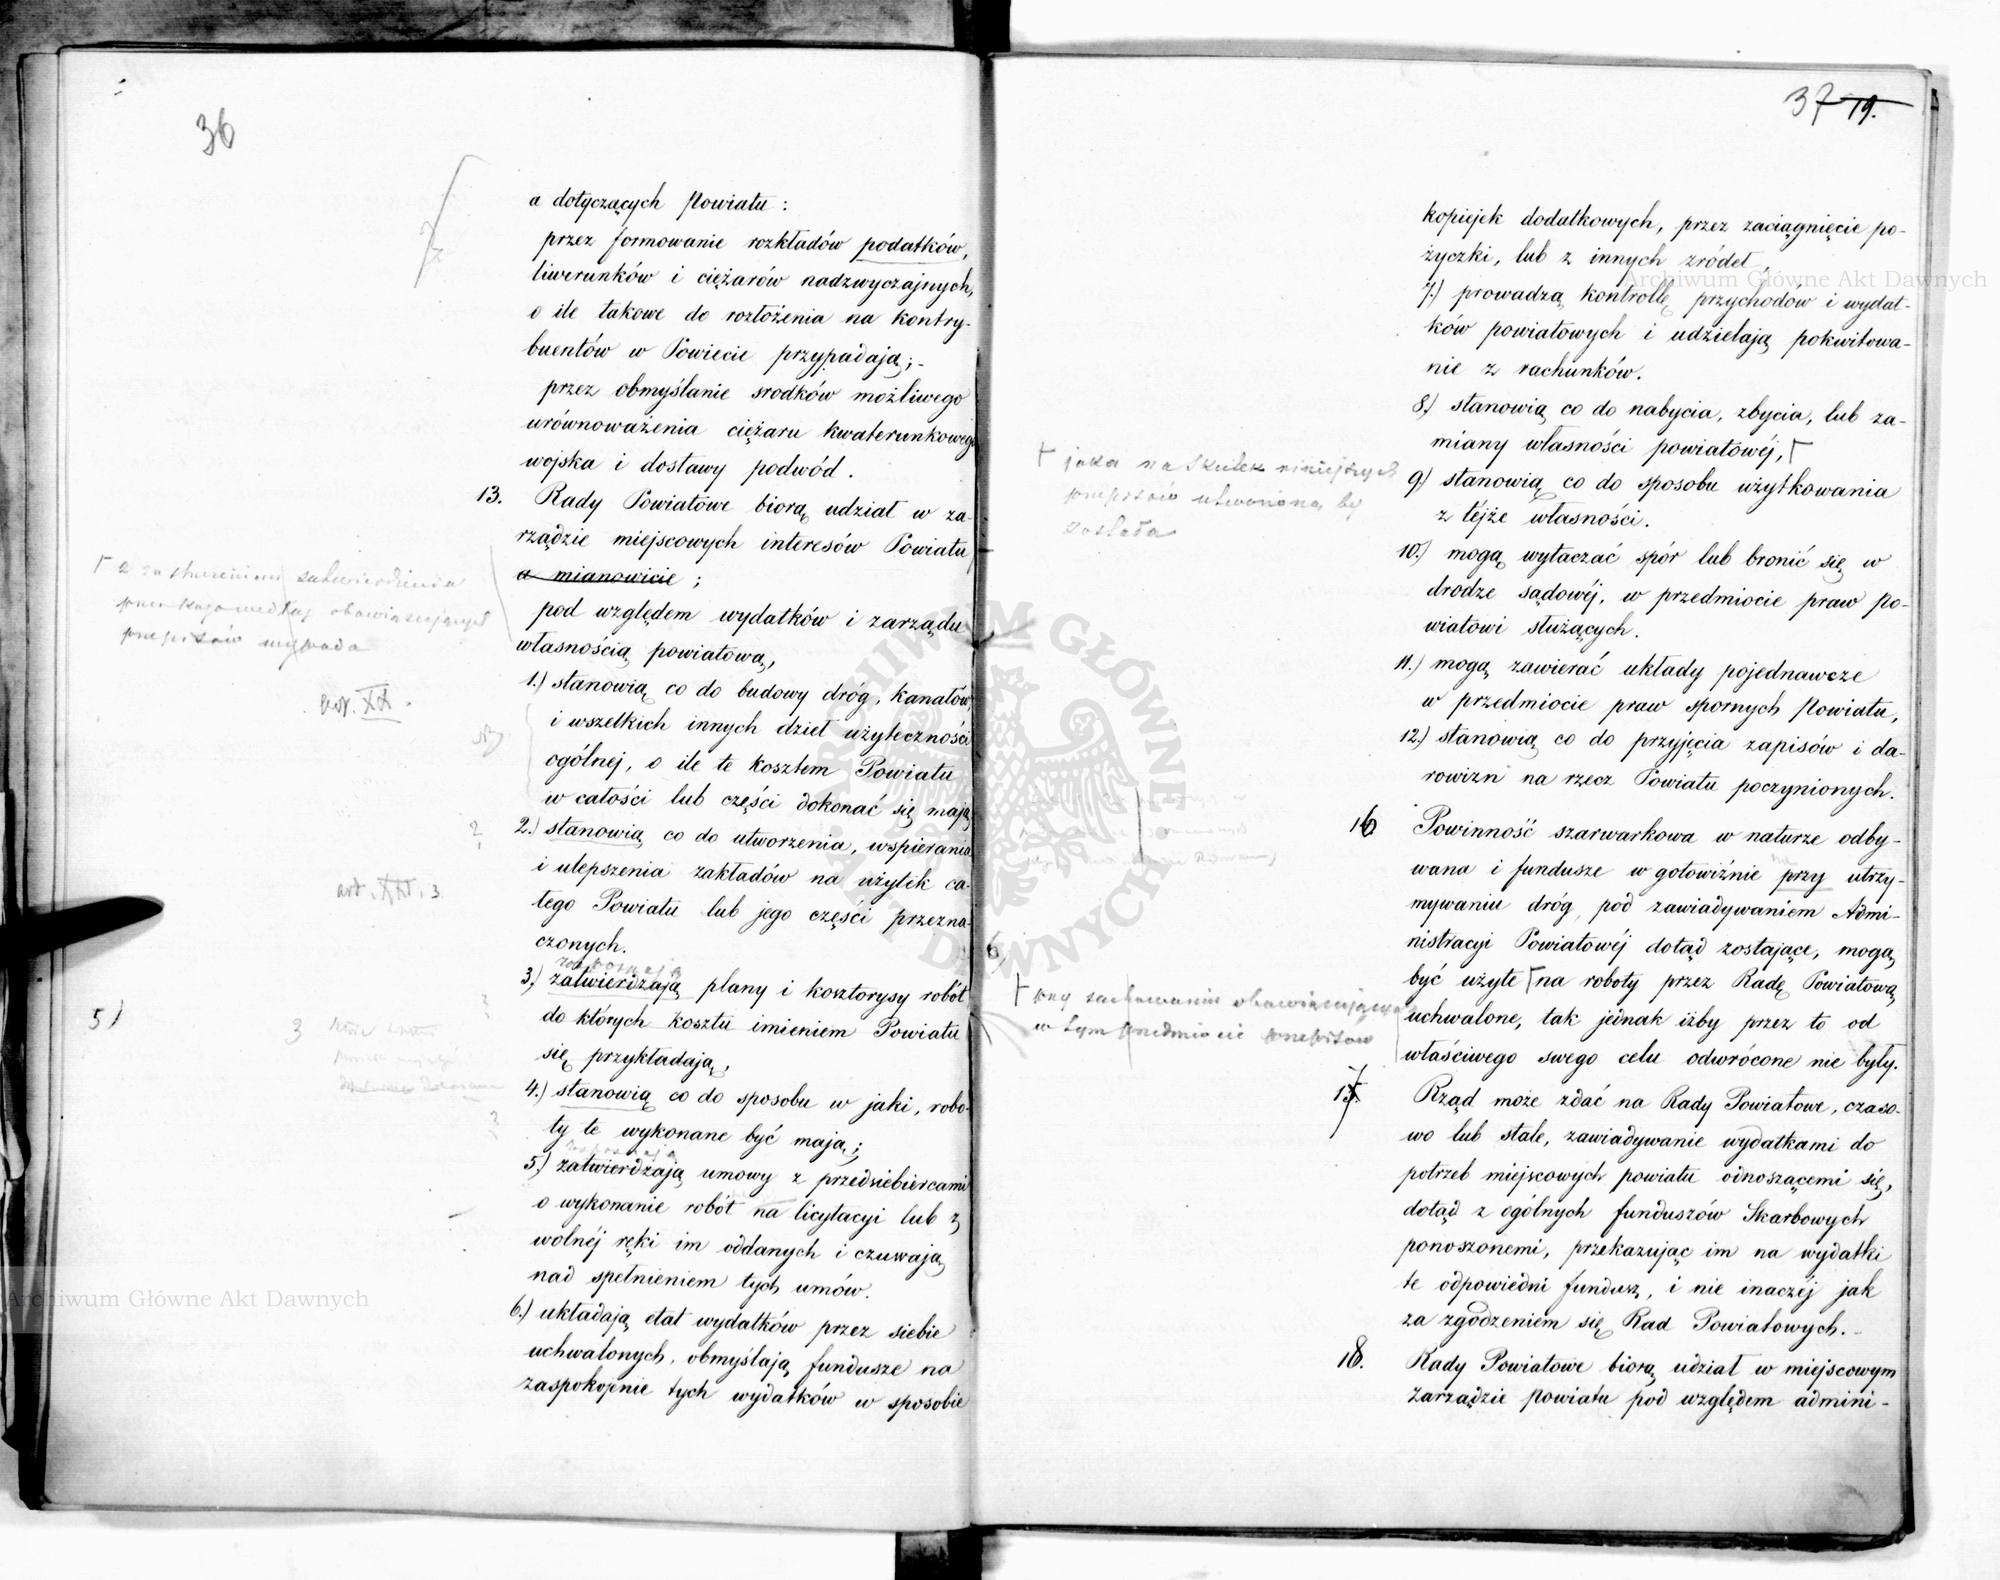 36
a dotyczących Powiatu :
przez formowanie rozkładów podatków,
liwerunków i ciężarów nadzwyczajnych,
o ile takowe do rozłożenia na kontry-
buentów w Powiecie przypadają;-
przez obmyślanie srodków możliwego
urównoważenia ciężaru kwaterunkowego
wojska i dostawy podwód.
13. Rady Powiatowe biorą udział w za-
rządzie miejscowych interesów Powiatu
a mianowicie ;
pod względem wydatków i zarządu
własnością powiatową,
1.) stanowią co do budowy dróg, kanałów,
i wszelkich innych dzieł użyteczności
ogólnej, o ile te kosztem Powiatu
w całości lub części dokonać się mają
2.) stanowią co do utworzenia, wspierania
i ulepszenia zakładów na użytek ca-
łego Powiatu lub jego części przezna-
czonych.
3.) zatwierdzają plany i kosztorysy robót
do których kosztu imieniem Powiatu
się przykładają,
4.) stanowią co do sposobu w jaki, robo-
ty te wykonane być mają;
5.) zatwierdzają umowy z przedsiebiercami
o wykonanie robót na licytacyi lub z
wolnéj ręki im oddanych i czuwają
nad spełnieniem tych umów.
6.) układają etat wydatków przez siebie
uchwalonych, obmyślają fundusze na
zaspokojenie tych wydatków w sposobie
obowiązujących
przepisów wypada
art. XX.
art. XXI. 3
5)
3
37 19.
kopiejek dodatkowych, przez zaciągnięcie po-
życzki, lub z innych źródeł,
7.) prowadzą kontrollę przychodów i wydat-
ków powiatowych i udzielają pokwitowa-
nie z rachunków.
8.) stanowią co do nabycia, zbycia, lub za-
miany własności powiatowéj,
9) stanowią co do sposobu użytkowania
z téjże własności.
10.) mogą wytaczać spór lub bronić się w
drodze sądowéj, w przedmiocie praw Po-
wiatowi służących.
11.) mogą zawierać układy pojednawcze
w przedmiocie praw spornych Powiatu,
12.) stanowią co do przyjęcia zapisów i da-
rowizn na rzecz Powiatu poczynionych.
16 Powinność szarwarkowa w naturze odby-
wana i fundusze w gotowiźnie przy utrzy-
mywaniu dróg, pod zawiadywaniem Admi-
nistracyi Powiatowéj dotąd zostające, mogą
być użyte na roboty przez Radę Powiatową
uchwalone, tak jednak iżby przez to od
właściwego swego celu odwrócone nie były.
17. Rząd może zdać na Rady Powiatowe, czaso-
wo lub stale, zawiadywanie wydatkami do
potrzeb miejscowych powiatu odnoszącemi się,
dotąd z ogólnych funduszów Skarbowych
ponoszonemi, przekazując im na wydatki
te odpowiedni fundusz, i nie inaczéj jak
za zgodzeniem się Rad Powiatowych.-
18. Rady Powiatowe biorą udział w miejscowym
zarządzie powiatu pod względem admini-
jaka na skutek niniejszych
przepisów utworzona by
została
6
przy zachowaniu obowiązujących
w tym przedmiocie przepisów
Archiwum Główne Akt Dawnych
Archiwum Główne Akt Dawnych
ARCHIWUM GŁÓWNE AKT DAWNYCH